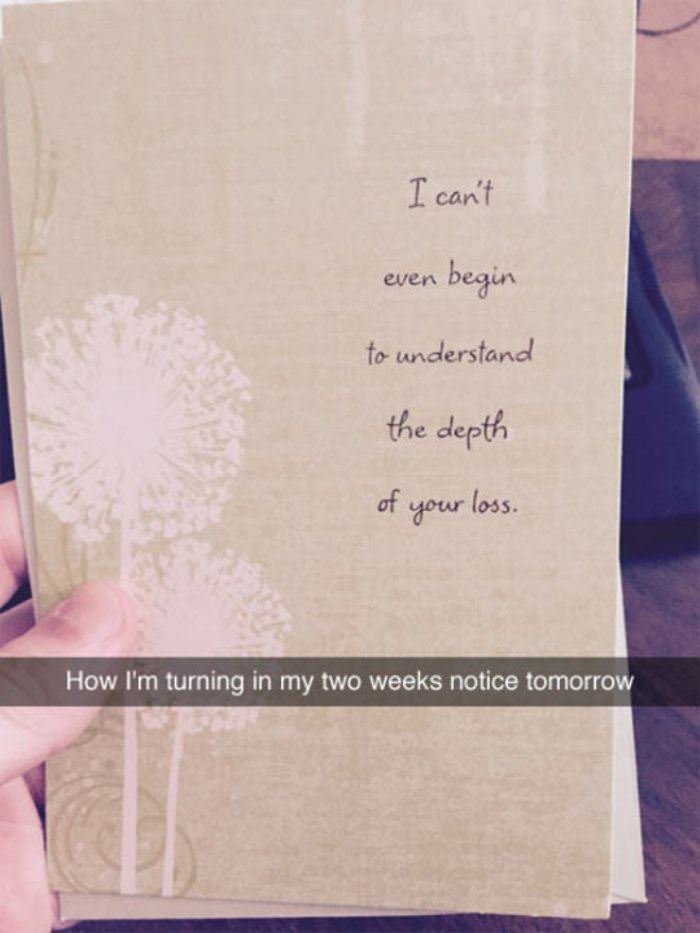 I can't
even begin
to understand
the depth
of your loss.
How I'm turning in my two weeks notice tomorrow